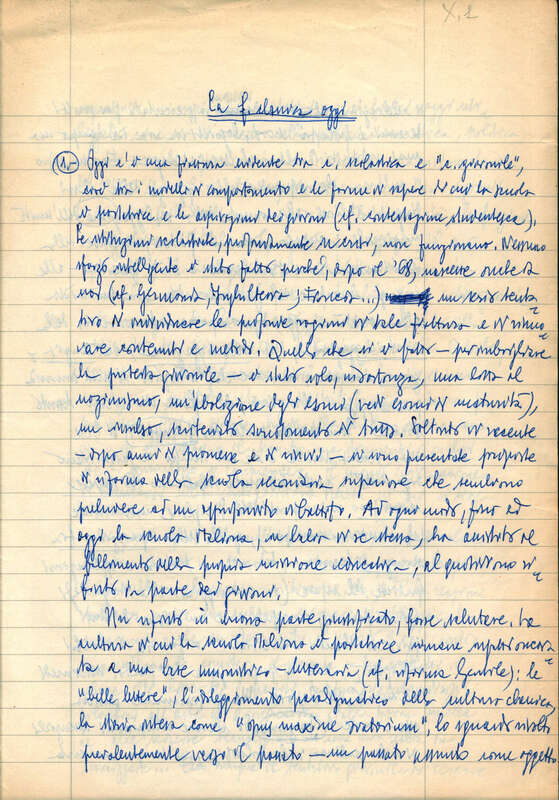 X, 2
La f. classica oggi
1.- Oggi c'è una frattura evidente tra c. scolastica e "c. giovanile",
cioè tra i modelli di comportamento e le forme di sapere di cui la scuola
è portatrice e le aspirazioni dei giovani (cf. contestazione studentesca).
Le istituzioni scolastiche, profondamente in crisi, non funzionano. Nessuno
sforzo intelligente è stato fatto perché, dopo il '68, nascesse anche da
noi (cf. Germania, Inghilterra, Francia...) un serio tenta=
tivo di individuare le profonde ragioni di tale frattura e di rinno=
vare contenuti e metodi. Quello che si è fatto – per imbrigliare
la protesta giovanile – è stato solo, in sostanza, una lotta al
nozionismo, un'abolizione degli esami (vedi esami di maturità),
un svuoto, di tutto. Soltanto di recente
– dopo anni di promesse e di rinvii – si sono presentate proposte
di riforma della scuola secondaria superiore che sembrano
preludere ad un approfondito dibattito. Ad ogni modo, fino ad
oggi la scuola italiana, in balia di se stessa, ha assistito al
fallimento della propria missione educativa, al quotidiano ri=
fiuto da parte dei giovani.
Un rifiuto in buona parte giustificato, forse salutare. La
cultura di cui la scuola italiana è portatrice rimane ancora
ta a una base umanistico-letteraria (cf. riforma Gentile): le
"belle lettere", l'atteggiamento paradigmatico della cultura classica,
la storia intesa come "opus maxime oratorium", lo sguardo rivolto
prevalentemente verso il passato – un passato assunto come oggetto